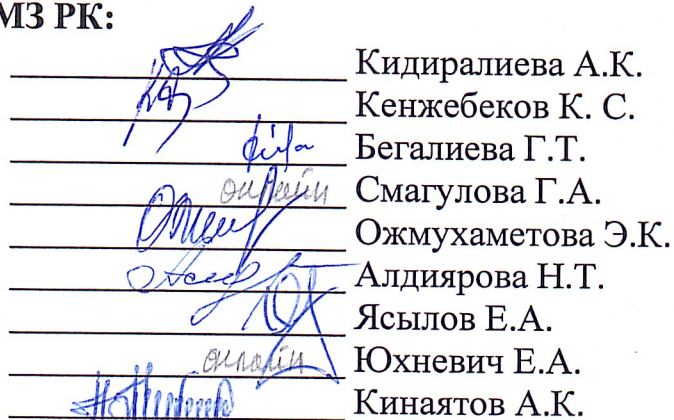 МЗ РК:
Кидиралиева А.К.
Кенжебеков К. С.
Бегалиева Г.Т.
онлайн Смагулова Г.А.
Ожмухаметова Э.К.
Алдиярова Н.Т.
Ясылов Е.А.
онлайн Юхневич Е.А.
Кинаятов А.К.